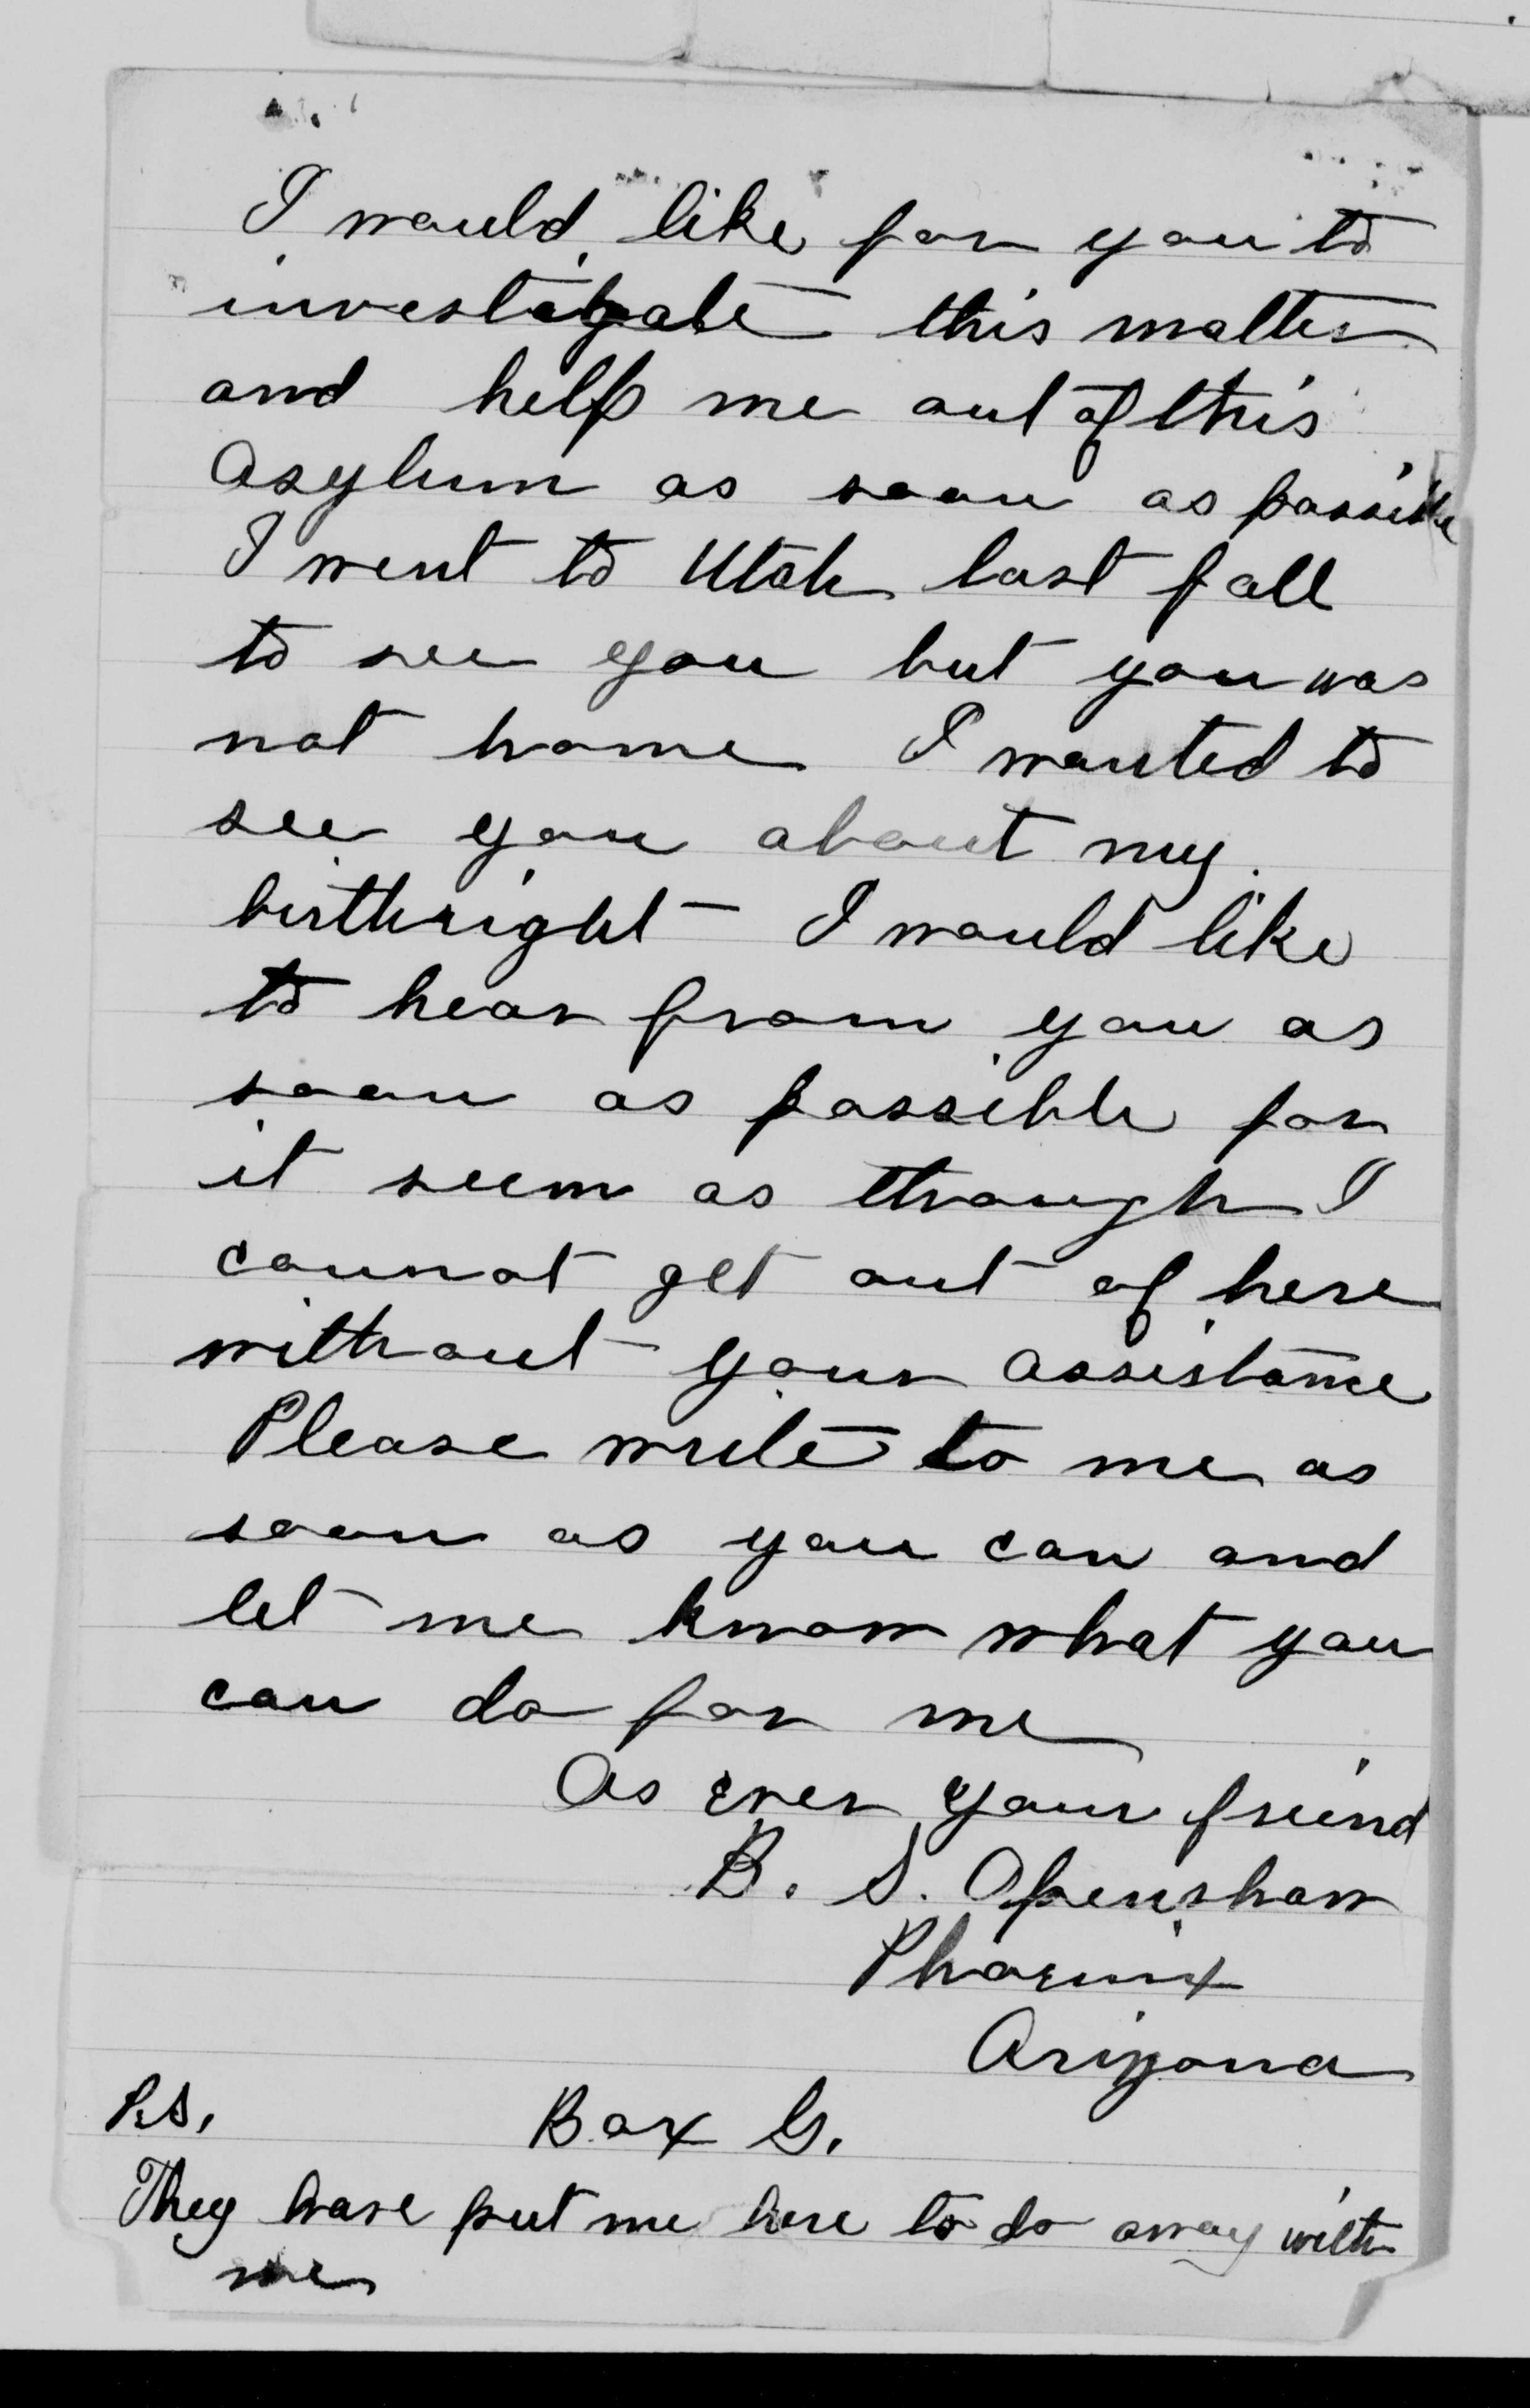 I would like for you to
investigate this matter
and help me out of this
Asylum as soon as possible
I went to Utah last fall
to see you but you was
not home I wanted to
see you about my
birthright - I would like
to hear from you as
soon as possible for
it seem as though I
cannot get out of here
without your assistance
Please write to me as
soon as you can and
let me know what you
can do for me
As ever your freind
B. S. Openshaw
Phoenix
Arizona
P.S. Box G.
They have put me here to do away with
me